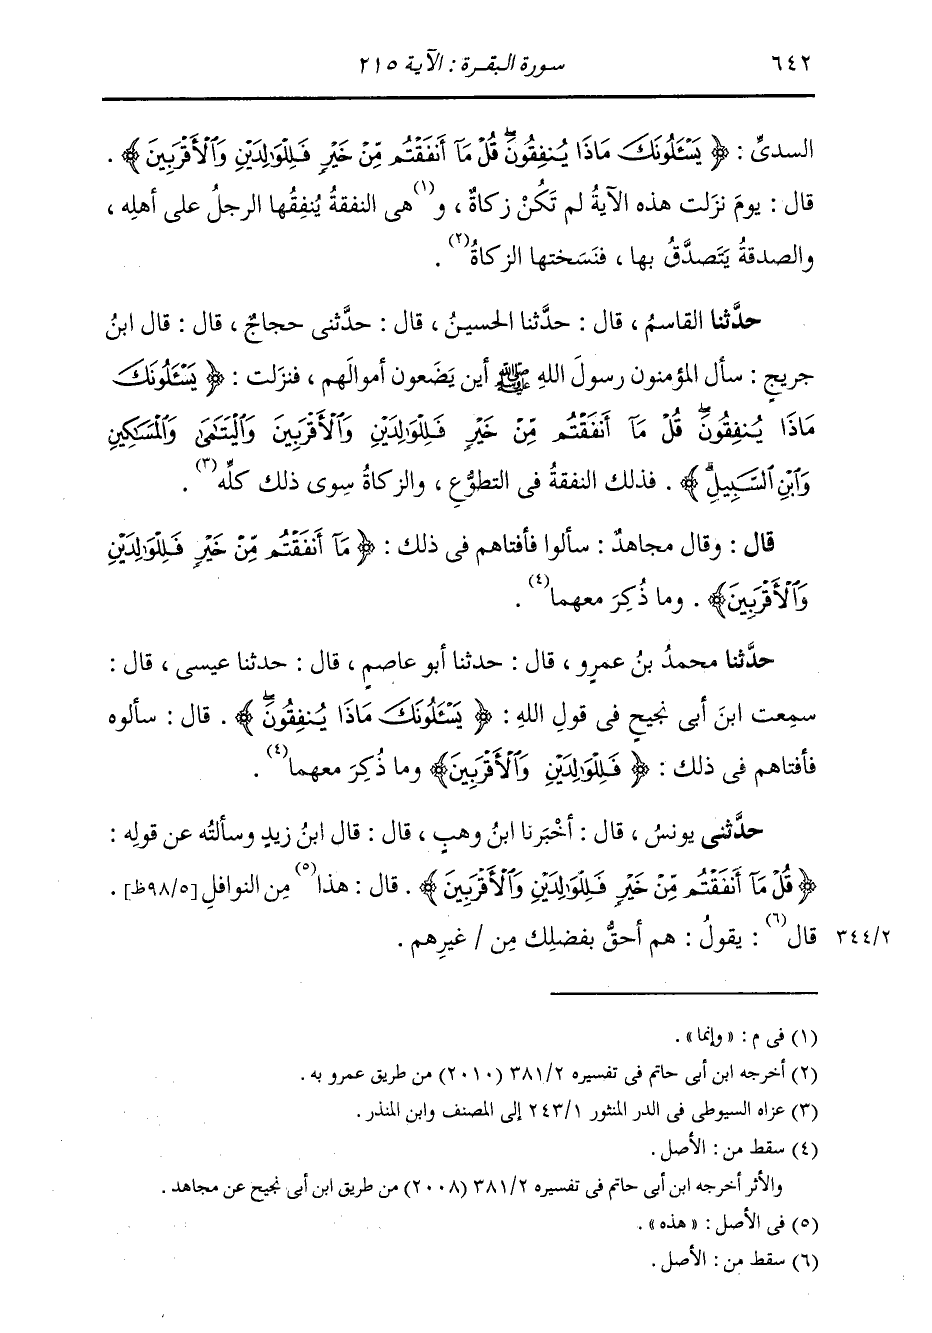 ٦٤٢ سورة البقرة : الآية ٢١٥
السدىِّ : ﴿ يَسْـَٔلُونَكَ مَاذَا يُنفِقُونَۖ قُلْ مَآ أَنفَقْتُم مِّنْ خَيْرٍ فَلِلْوَٰلِدَيْنِ وَٱلْأَقْرَبِينَ ﴾ .
قال : يومَ نزَلت هذه الآيةُ لم تَكُنْ زكاةٌ ، و(١)هى النفقةُ يُنفِقُها الرجلُ على أهلِه ،
والصدقةُ يَتَصدَّقُ بها ، فنَسَختها الزكاةُ(٢) .
حدَّثنا القاسمُ ، قال : حدَّثنا الحسينُ ، قال : حدَّثنى حجاجٌ ، قال : قال ابنُ
جريجٍ : سأل المؤمنون رسولَ اللهِ ﷺ أين يَضَعون أموالَهم ، فنزلت : ﴿ يَسْـَٔلُونَكَ
مَاذَا يُنفِقُونَۖ قُلْ مَآ أَنفَقْتُم مِّنْ خَيْرٍ فَلِلْوَٰلِدَيْنِ وَٱلْأَقْرَبِينَ وَٱلْيَتَٰمَىٰ وَٱلْمَسَٰكِينِ
وَٱبْنِ ٱلسَّبِيلِۗ ﴾ . فذلك النفقةُ فى التطوُّعِ ، والزكاةُ سِوى ذلك كلِّه(٣) .
قال : وقال مجاهدٌ : سألوا فأفتاهم فى ذلك : ﴿ مَآ أَنفَقْتُم مِّنْ خَيْرٍ فَلِلْوَٰلِدَيْنِ
وَٱلْأَقْرَبِينَ﴾ . وما ذُكِرَ معهما(٤) .
حدَّثنا محمدُ بنُ عمرٍو ، قال : حدثنا أبو عاصمٍ ، قال : حدثنا عيسى ، قال :
سمِعت ابنَ أبى نجيحٍ فى قولِ اللهِ : ﴿ يَسْـَٔلُونَكَ مَاذَا يُنفِقُونَۖ ﴾ . قال : سألوه
فأفتاهم فى ذلك : ﴿ فَلِلْوَٰلِدَيْنِ وَٱلْأَقْرَبِينَ﴾ وما ذُكِرَ معهما(٤) .
حدَّثنى يونسُ ، قال : أخْبَرنا ابنُ وهبٍ ، قال : قال ابنُ زيدٍ وسألتُه عن قولِه :
﴿ قُلْ مَآ أَنفَقْتُم مِّنْ خَيْرٍ فَلِلْوَٰلِدَيْنِ وَٱلْأَقْرَبِينَ ﴾ . قال : هذا(٥) مِن النوافلِ [٩٨/٥ظ] .
٣٤٤/٢ قال(٦) : يقولُ : هم أحقُّ بفضلِك مِن / غيرِهم .
(١) فى م : « وإنما » .
(٢) أخرجه ابن أبى حاتم فى تفسيره ٣٨١/٢ (٢٠١٠) من طريق عمرو به .
(٣) عزاه السيوطى فى الدر المنثور ٢٤٣/١ إلى المصنف وابن المنذر .
(٤) سقط من : الأصل .
والأثر أخرجه ابن أبى حاتم فى تفسيره ٣٨١/٢ (٢٠٠٨) من طريق ابن أبى نجيح عن مجاهد .
(٥) فى الأصل : « هذه » .
(٦) سقط من : الأصل .